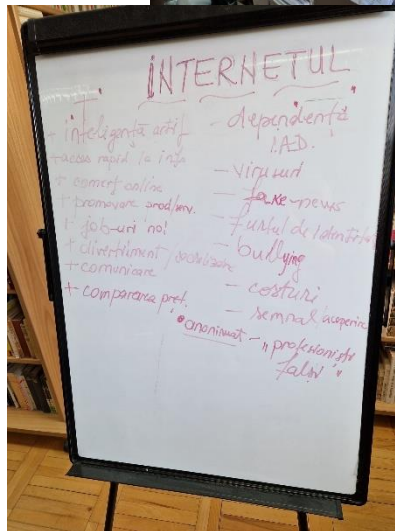 INTERNETUL
+ inteligență artif
+ acces rapid la info
+ comerț online
+ promovare prod/serv.
+ job-uri noi
+ divertisment / socializare
+ comunicare
+ compararea preț.
- dependență
I.A.D.
- virusuri
- fake-news
- furtul de identitate
- bullying
- costuri
- semnal/acoperire
• anonimat - "profesioniști
falși"